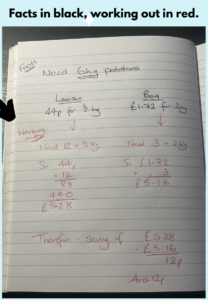 Facts in black, working out in red.
Facts
Need 6kg potatoes
Loose
Bag
44p for ½ kg
£1.72 for 2kg
Working out
Need 12 × ½ kg
Need 3 × 2kg
So 44
So £1.72
× 12
× 3
88
£5.16
440
£5.28
Therefore - saving of £5.28
- £5.16
12p
Ans 12p